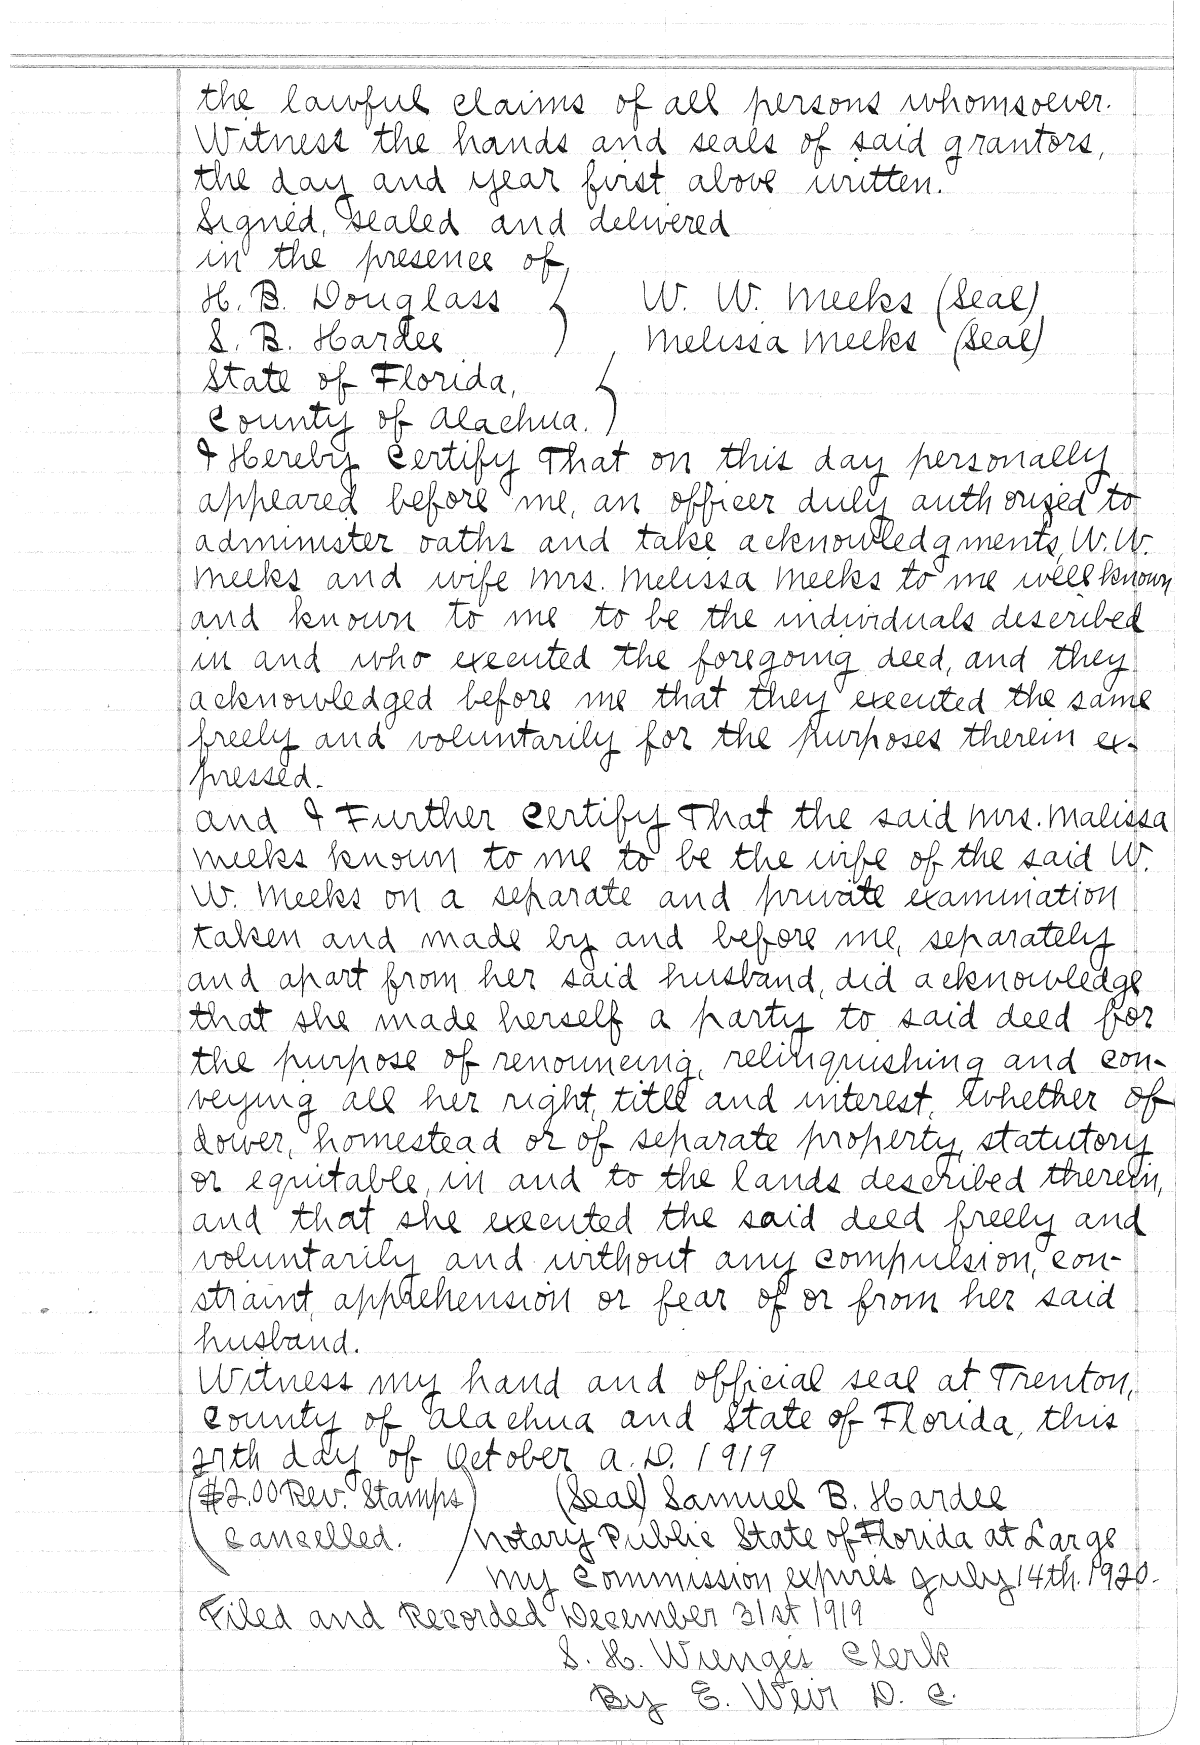 the lawful claims of all persons whomsoever.
Witness the hands and seals of said grantors,
the day and year first above written.
Signed, sealed and delivered
in the presence of
H. B. Douglass W. W. Meeks (Seal)
S. B. Hardee Melissa Meeks (Seal)
State of Florida,
County of Alachua.
I Hereby Certify That on this day personally
appeared before me, an officer duly authorized to
administer oaths and take acknowledgments, W.W.
Meeks and wife Mrs. Melissa Meeks to me well known
and known to me to be the individuals described
in and who executed the foregoing deed, and they
acknowledged before me that they executed the same
freely and voluntarily for the purposes therein ex-
pressed.
And I Further Certify That the said Mrs. Malissa
Meeks known to me to be the wife of the said W.
W. Meeks on a separate and private examination
taken and made by and before me, separately
and apart from her said husband, did acknowledge
that she made herself a party to said deed for
the purpose of renouncing, relinquishing and con-
veying all her right, title and interest, whether of
dower, homestead or of separate property, statutory
or equitable, in and to the lands described therein,
and that she executed the said deed freely and
voluntarily and without any compulsion, con-
straint, apprehension or fear of or from her said
husband.
Witness my hand and official seal at Trenton,
County of Alachua and State of Florida, this
27th day of October A.D. 1919
($2.00 Rev. Stamps (Seal) Samuel B. Hardee
Cancelled.) Notary Public State of Florida at Large
My Commission expires July 14th. 1920.
Filed and Recorded December 31st 1919
S. H. Wienges Clerk
By E. Weir D. C.